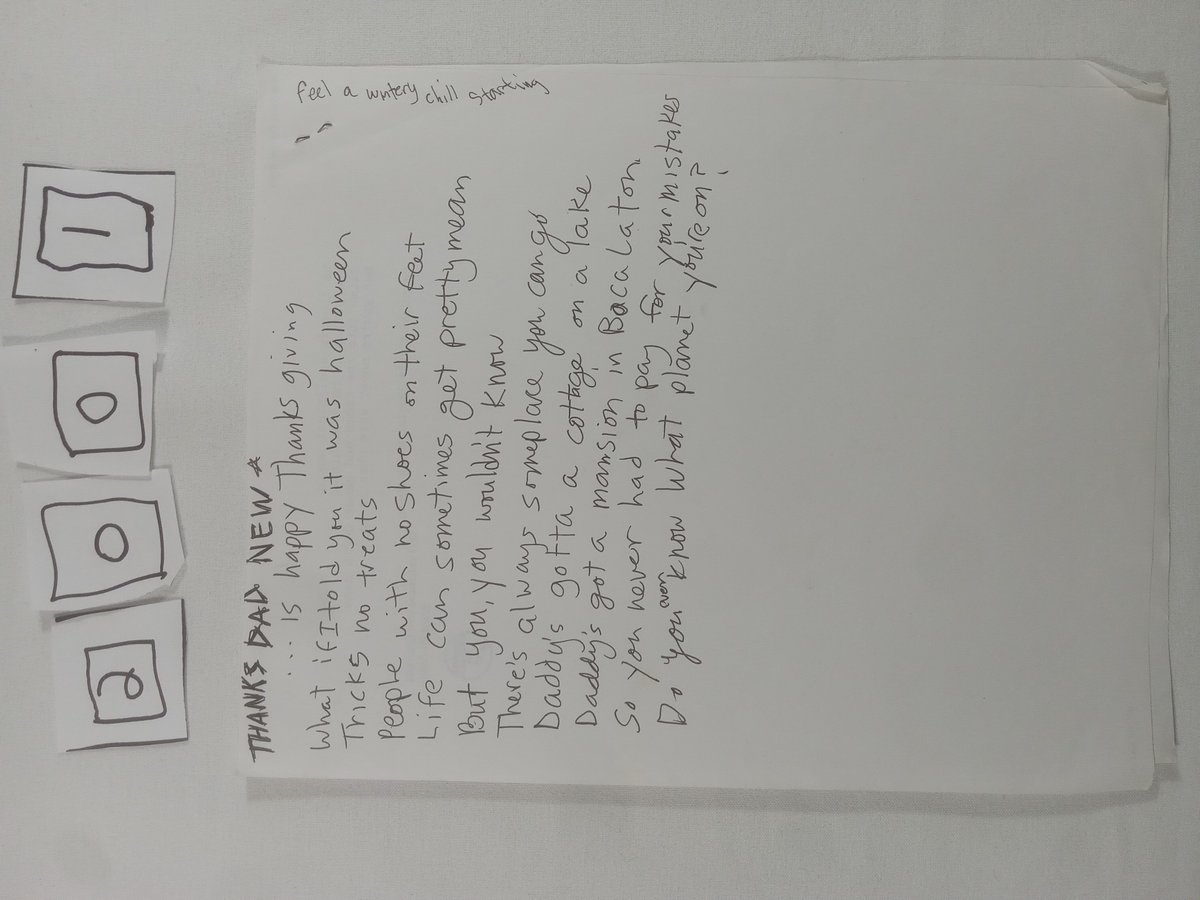 2 0 0 1
THANKS DAD NEW
... is happy Thanks giving
What if I told you it was halloween
Tricks no treats
People with no shoes on their feet
Life can sometimes get pretty mean
But you, you wouldn't know
There's always someplace you can go
Daddy's gotta a cottage on a lake
Daddy's got a mansion in Baca Laton
So you never had to pay for your mistakes
Do you even know what planet you're on?
feel a wntery chill starting